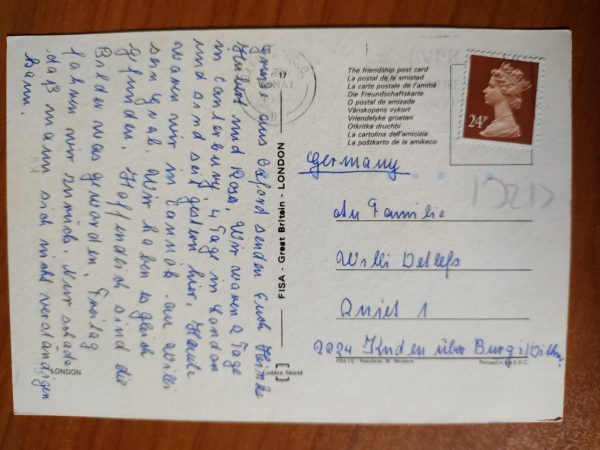 Grüße aus Oxford senden Euch Heinke
Hubert und Rosa. Wir waren 2 Tage
in Canterbury, 4 Tage in London
und sind seit gestern hier. Heute
waren wir in
sein Grab. Wir haben es gleich
gefunden. Hoffentlich sind die
Bilder was geworden. Freitag
fahren wir zurück. Nur schade
daß man sich nicht verständigen
kann.
LONDON
FISA - Great Britain - LONDON
Golden Shield
The friendship post card
La postal de la amistad
La carte postale de l'amitié
Die Freundschaftskarte
O postal de amizada
Vänskopens vykort
Vriendelyke groeten
Otkritka druchbi
La cartolina dell'amicizia
La poŝtkarto de la amikeco
24P
Germany
An Familie
Willi Detlefs
Quiet 1
Kuden über Burg i/Dithm.
Printed in E.E.C.